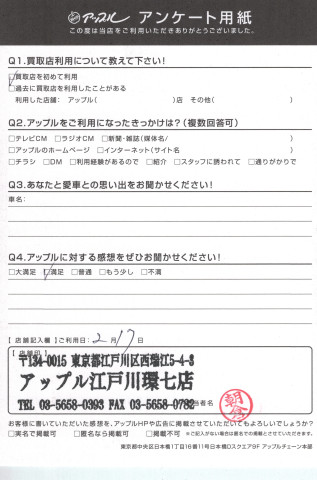 アップル アンケート用紙
この度は当店をご利用いただきありがとうございました。
Q1.買取店利用について教えて下さい!
□買取店を初めて利用
□過去に買取店を利用したことがある
利用した店舗: アップル( )店 その他( )
Q2.アップルをご利用になったきっかけは?(複数回答可)
□テレビCM □ラジオCM □新聞・雑誌(媒体名/ )
□アップルのホームページ □インターネット(サイト名 )
□チラシ □DM □利用経験があるので □紹介 □スタッフに誘われて □通りがかりで
Q3.あなたと愛車との思い出をお聞かせください!
車名:
Q4.アップルに対する感想をぜひお聞かせください!
□大満足 □満足 □普通 □もう少し □不満
【 店舗記入欄 】ご利用日: 2 月 17 日
【 店舗印 】
〒134-0015 東京都江戸川区西瑞江5-4-3
アップル江戸川環七店
TEL 03-5658-0393 FAX 03-5658-0782
担当者名
朝倉
お客様に書いていただいた感想を、アップルHPや広告に掲載させていただいてもよろしいでしょうか?
□実名で掲載可 □匿名なら掲載可 □掲載不可 ※ご記入がない場合は匿名での掲載とさせていただきます。
東京都中央区日本橋1丁目16番11号日本橋Dスクエア9F アップルチェーン本部